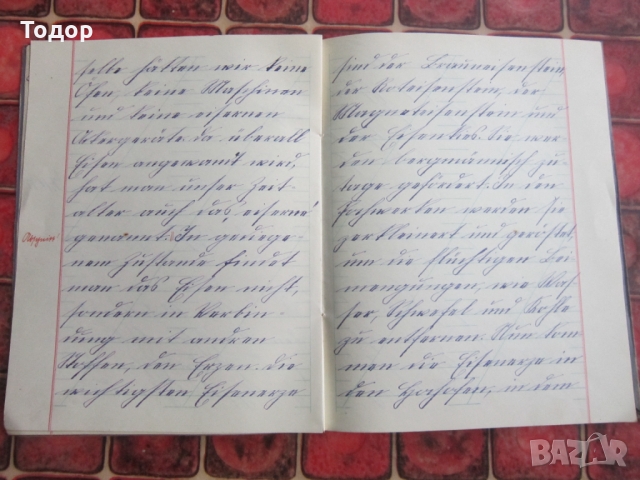 Тодор
selbe hätten wir keine
Öfen, keine Maschinen
und keine eisernen
Ackergeräte. Da überall
Eisen angewandt wird,
hat man unser Zeit-
alter auch das eiserne
genannt. In gediege-
nem Zustande findet
man das Eisen nicht,
sondern in Verbin-
dung mit andren
Stoffen, den Erzen. Die
wichtigsten Eisenerze
sind der Brauneisenstein,
der Roteisenstein, der
Magneteisenstein und
der Eisenkies. Sie wer-
den bergmännisch zu-
tage gefördert. In den
Pochwerken werden sie
zerkleinert und geröstet,
um die flüchtigen Bei-
mengungen, wie Was-
ser, Schwefel und
zu entfernen. Nun kom
men die Eisenerze in
den Hochofen, in dem
BAZAR
bg